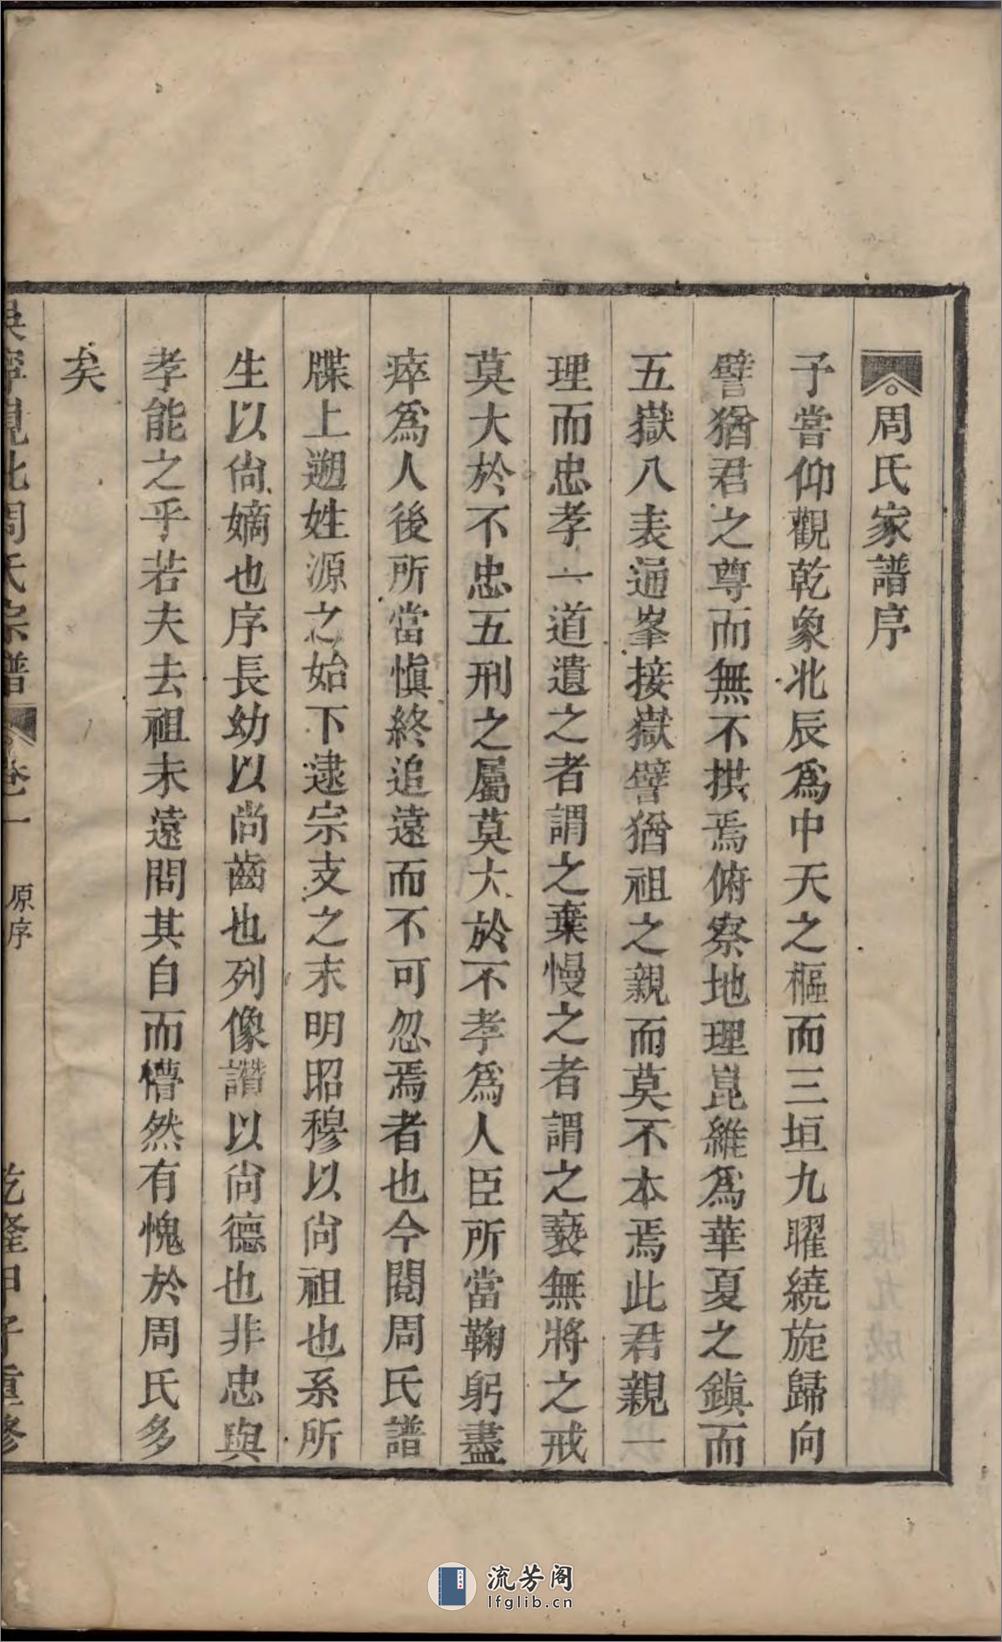 周氏家譜序
予嘗仰觀乾象北辰爲中天之樞而三垣九曜繞旋歸向
譬猶君之尊而無不拱焉俯察地理崑維爲華夏之鎮而
五嶽八表通峯接嶽譬猶祖之親而莫不本焉此君親一
理而忠孝一道遺之者謂之棄慢之者謂之褻無將之戒
莫大於不忠五刑之屬莫大於不孝爲人臣所當鞠躬盡
瘁爲人後所當慎終追遠而不可忽焉者也今閱周氏譜
牒上遡姓源之始下逮宗支之末明昭穆以尚祖也系所
生以尚嫡也序長幼以尚齒也列像讚以尚德也非忠與
孝能之乎若夫去祖未遠問其自而懵然有愧於周氏多
矣
吳寧峴北周氏宗譜 卷一 原序 乾隆甲子重修
流芳阁
lfglib.cn